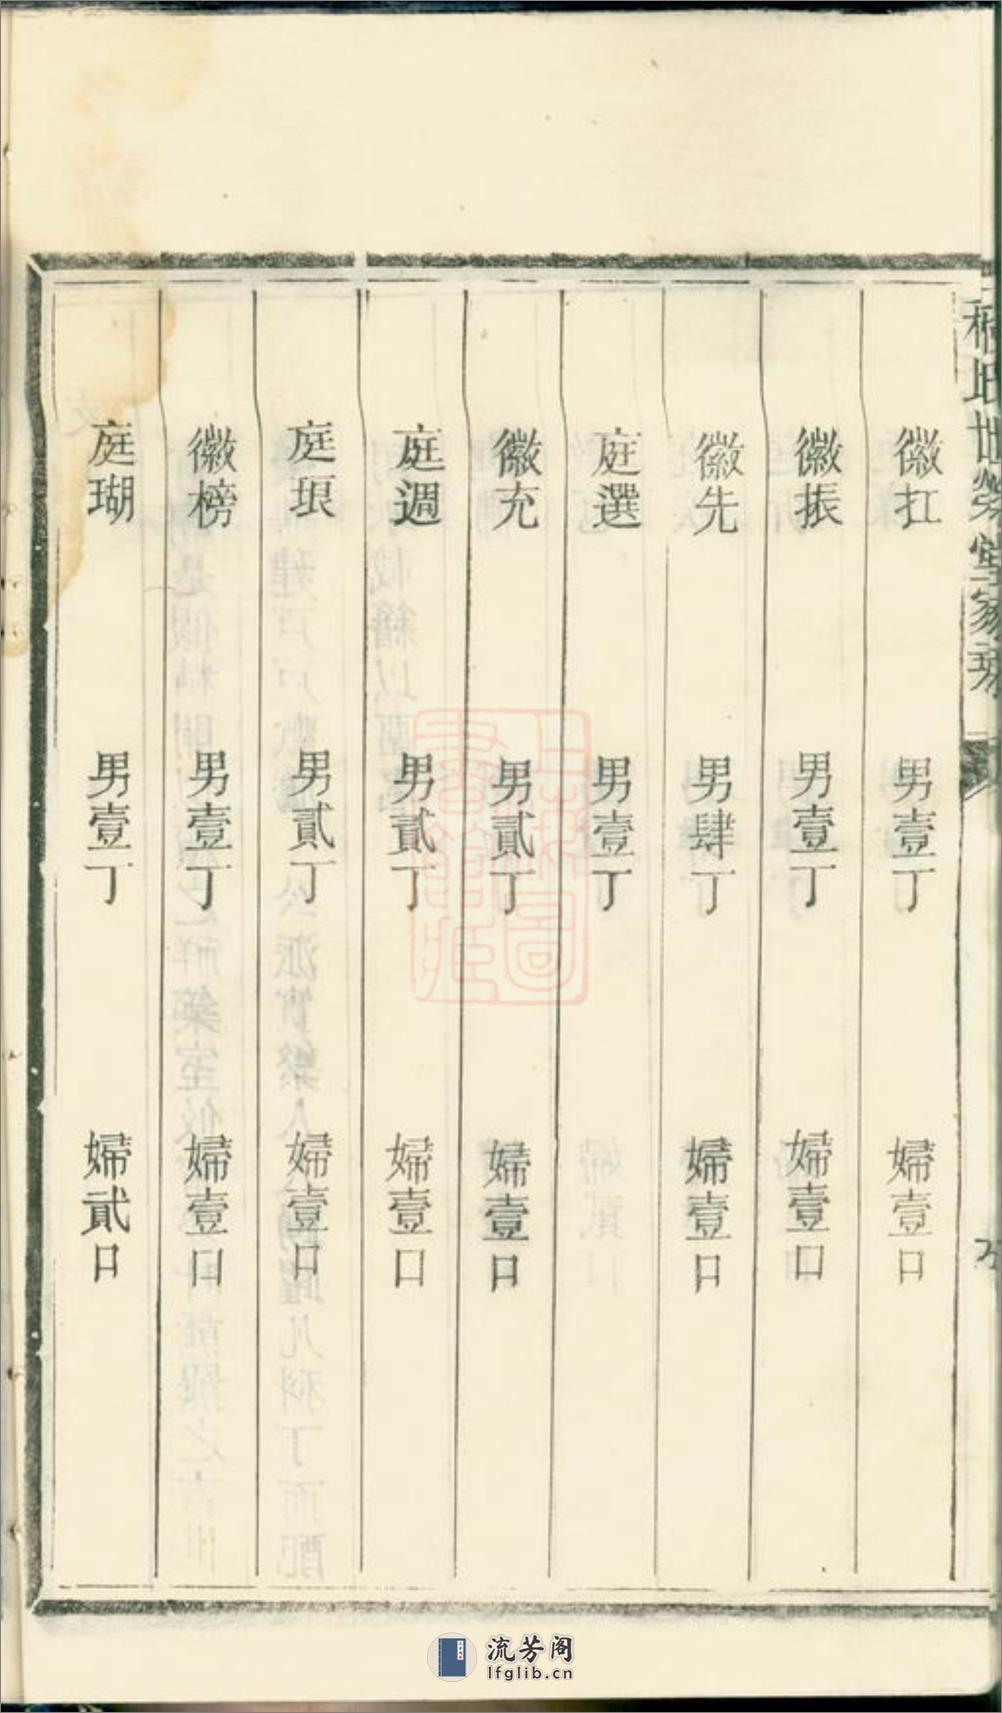 程氏世榮堂家規
徽扛　男壹丁　婦壹口
徽振　男壹丁　婦壹口
徽先　男肆丁　婦壹口
庭選　男壹丁
徽充　男貳丁　婦壹口
庭週　男貳丁　婦壹口
庭琅　男貳丁　婦壹口
徽榜　男壹丁　婦壹口
庭瑚　男壹丁　婦貳口
流芳阁
lfglib.cn